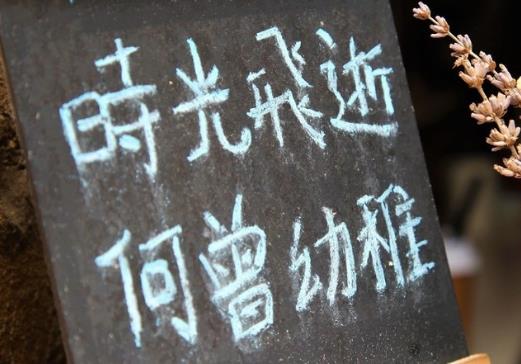 時光飛逝
何曾幼稚